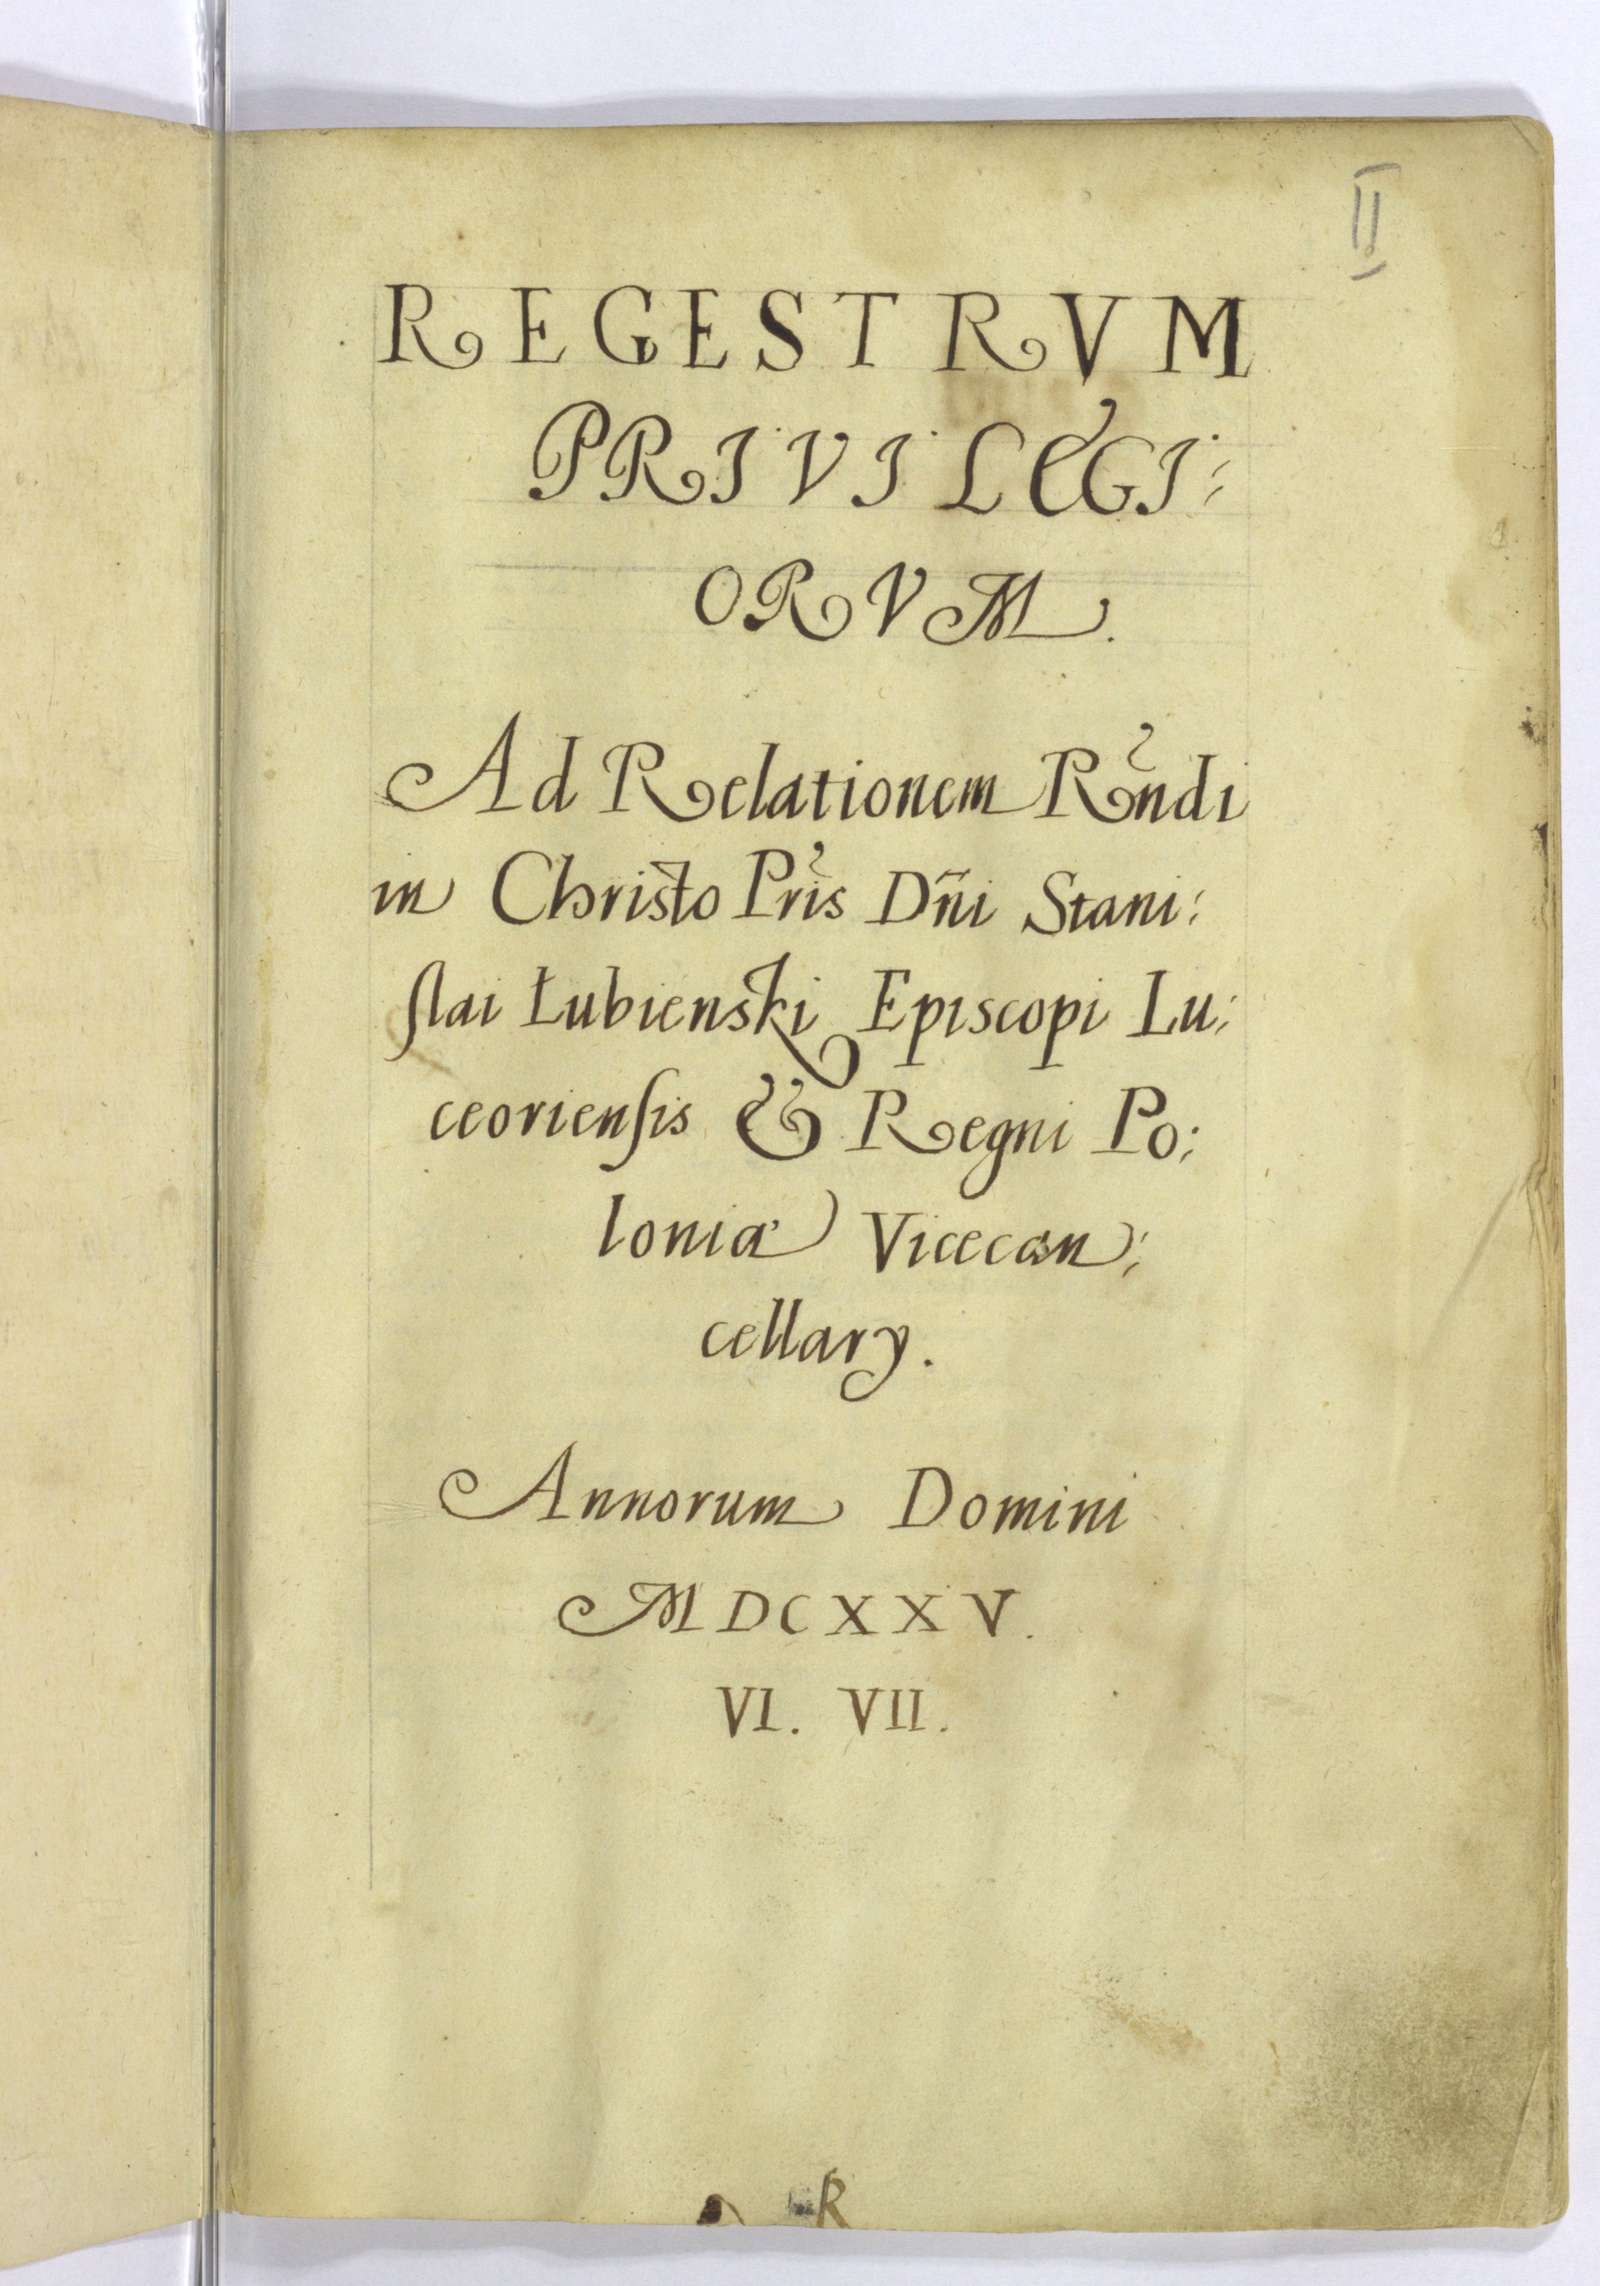 II
REGESTRVM
PRIVILEGI:
ORVM.
Ad Relationem Rñdi
in Christo Pris Dñi Stani:
slai Łubienski Episcopi Lu:
ceoriensis & Regni Po:
loniæ Vicecan:
cellary.
Annorum Domini
MDCXXV.
VI. VII.
R